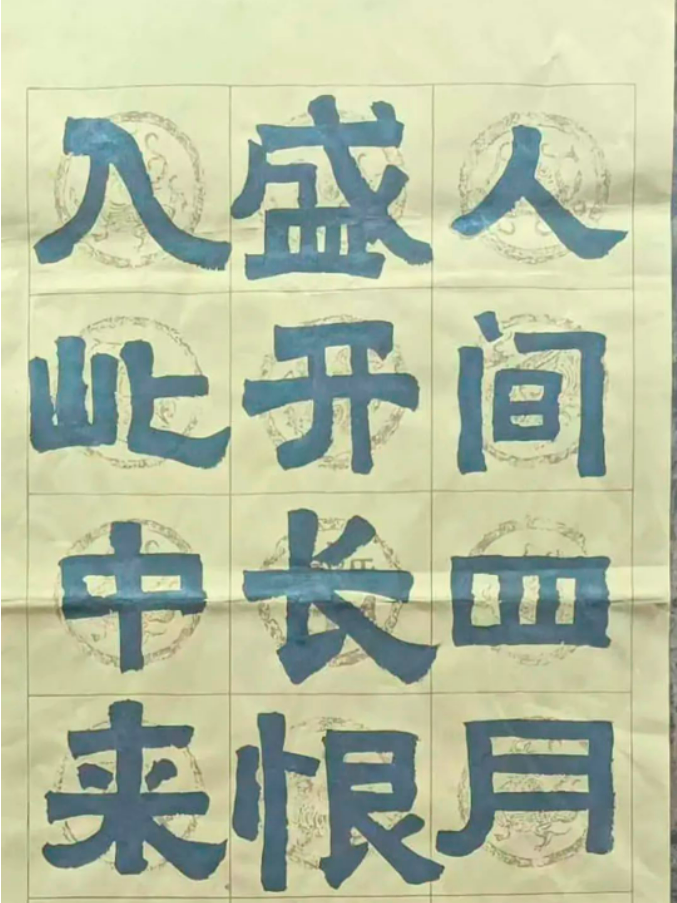 人间四月
盛开长恨
入此中来